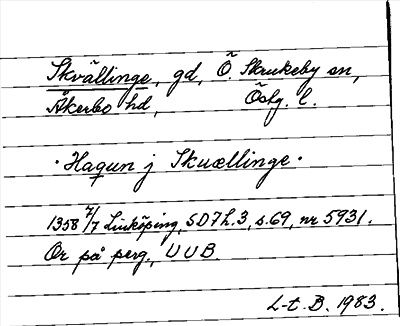 Skvällinge, gd, Ö. Skrukeby sn,
Åkerbo hd, Östg. l.
· Haqun j Skuællinge ·
1358 7/7 Linköping, SD 7 h. 3, s. 69, nr 5931.
Or på perg., UUB.
L-t. B. 1983.